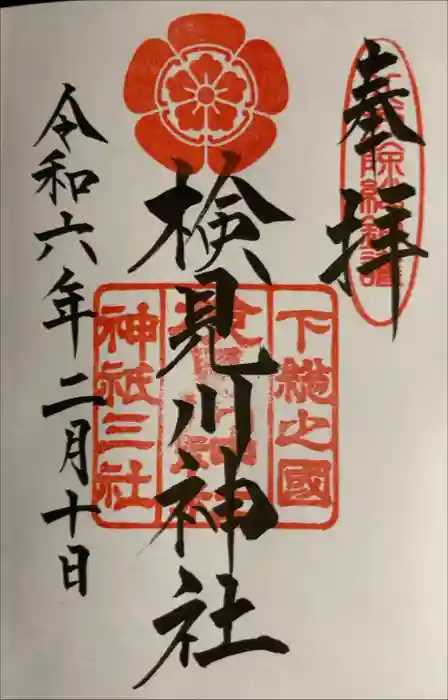 奉拝
下総之國
検見川神社
神祇三社
令和六年二月十日